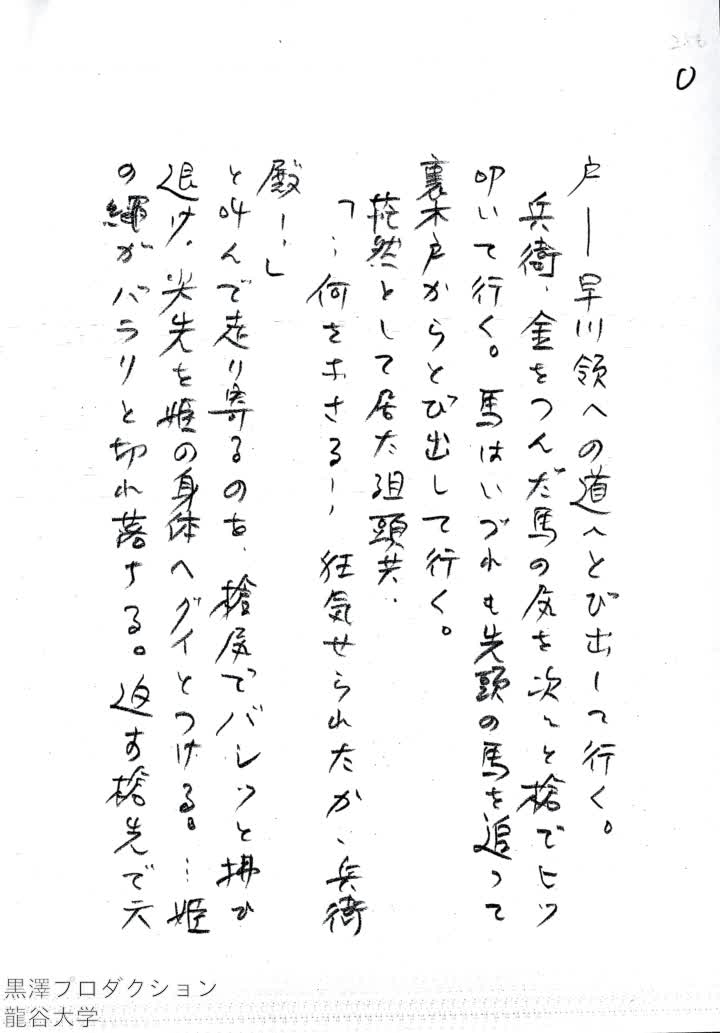 戸―早川領への道へとび出して行く。
兵衛、金をつんだ馬の尻を次々と槍でヒツ
叩いて行く。馬はいづれも先頭の馬を追つて
裏木戸からとび出して行く。
茫然として居た組頭共.
「…何をなさる!, 狂気せられたか、兵衛
殿!.」
と叫んで走り寄るのを、槍尻でバシツと拂ひ
退け、尖先を姫の身体へグイとつける。…姫
の縄がバラリと切れ落ちる。返す槍先で六
黒澤プロダクション
龍谷大学